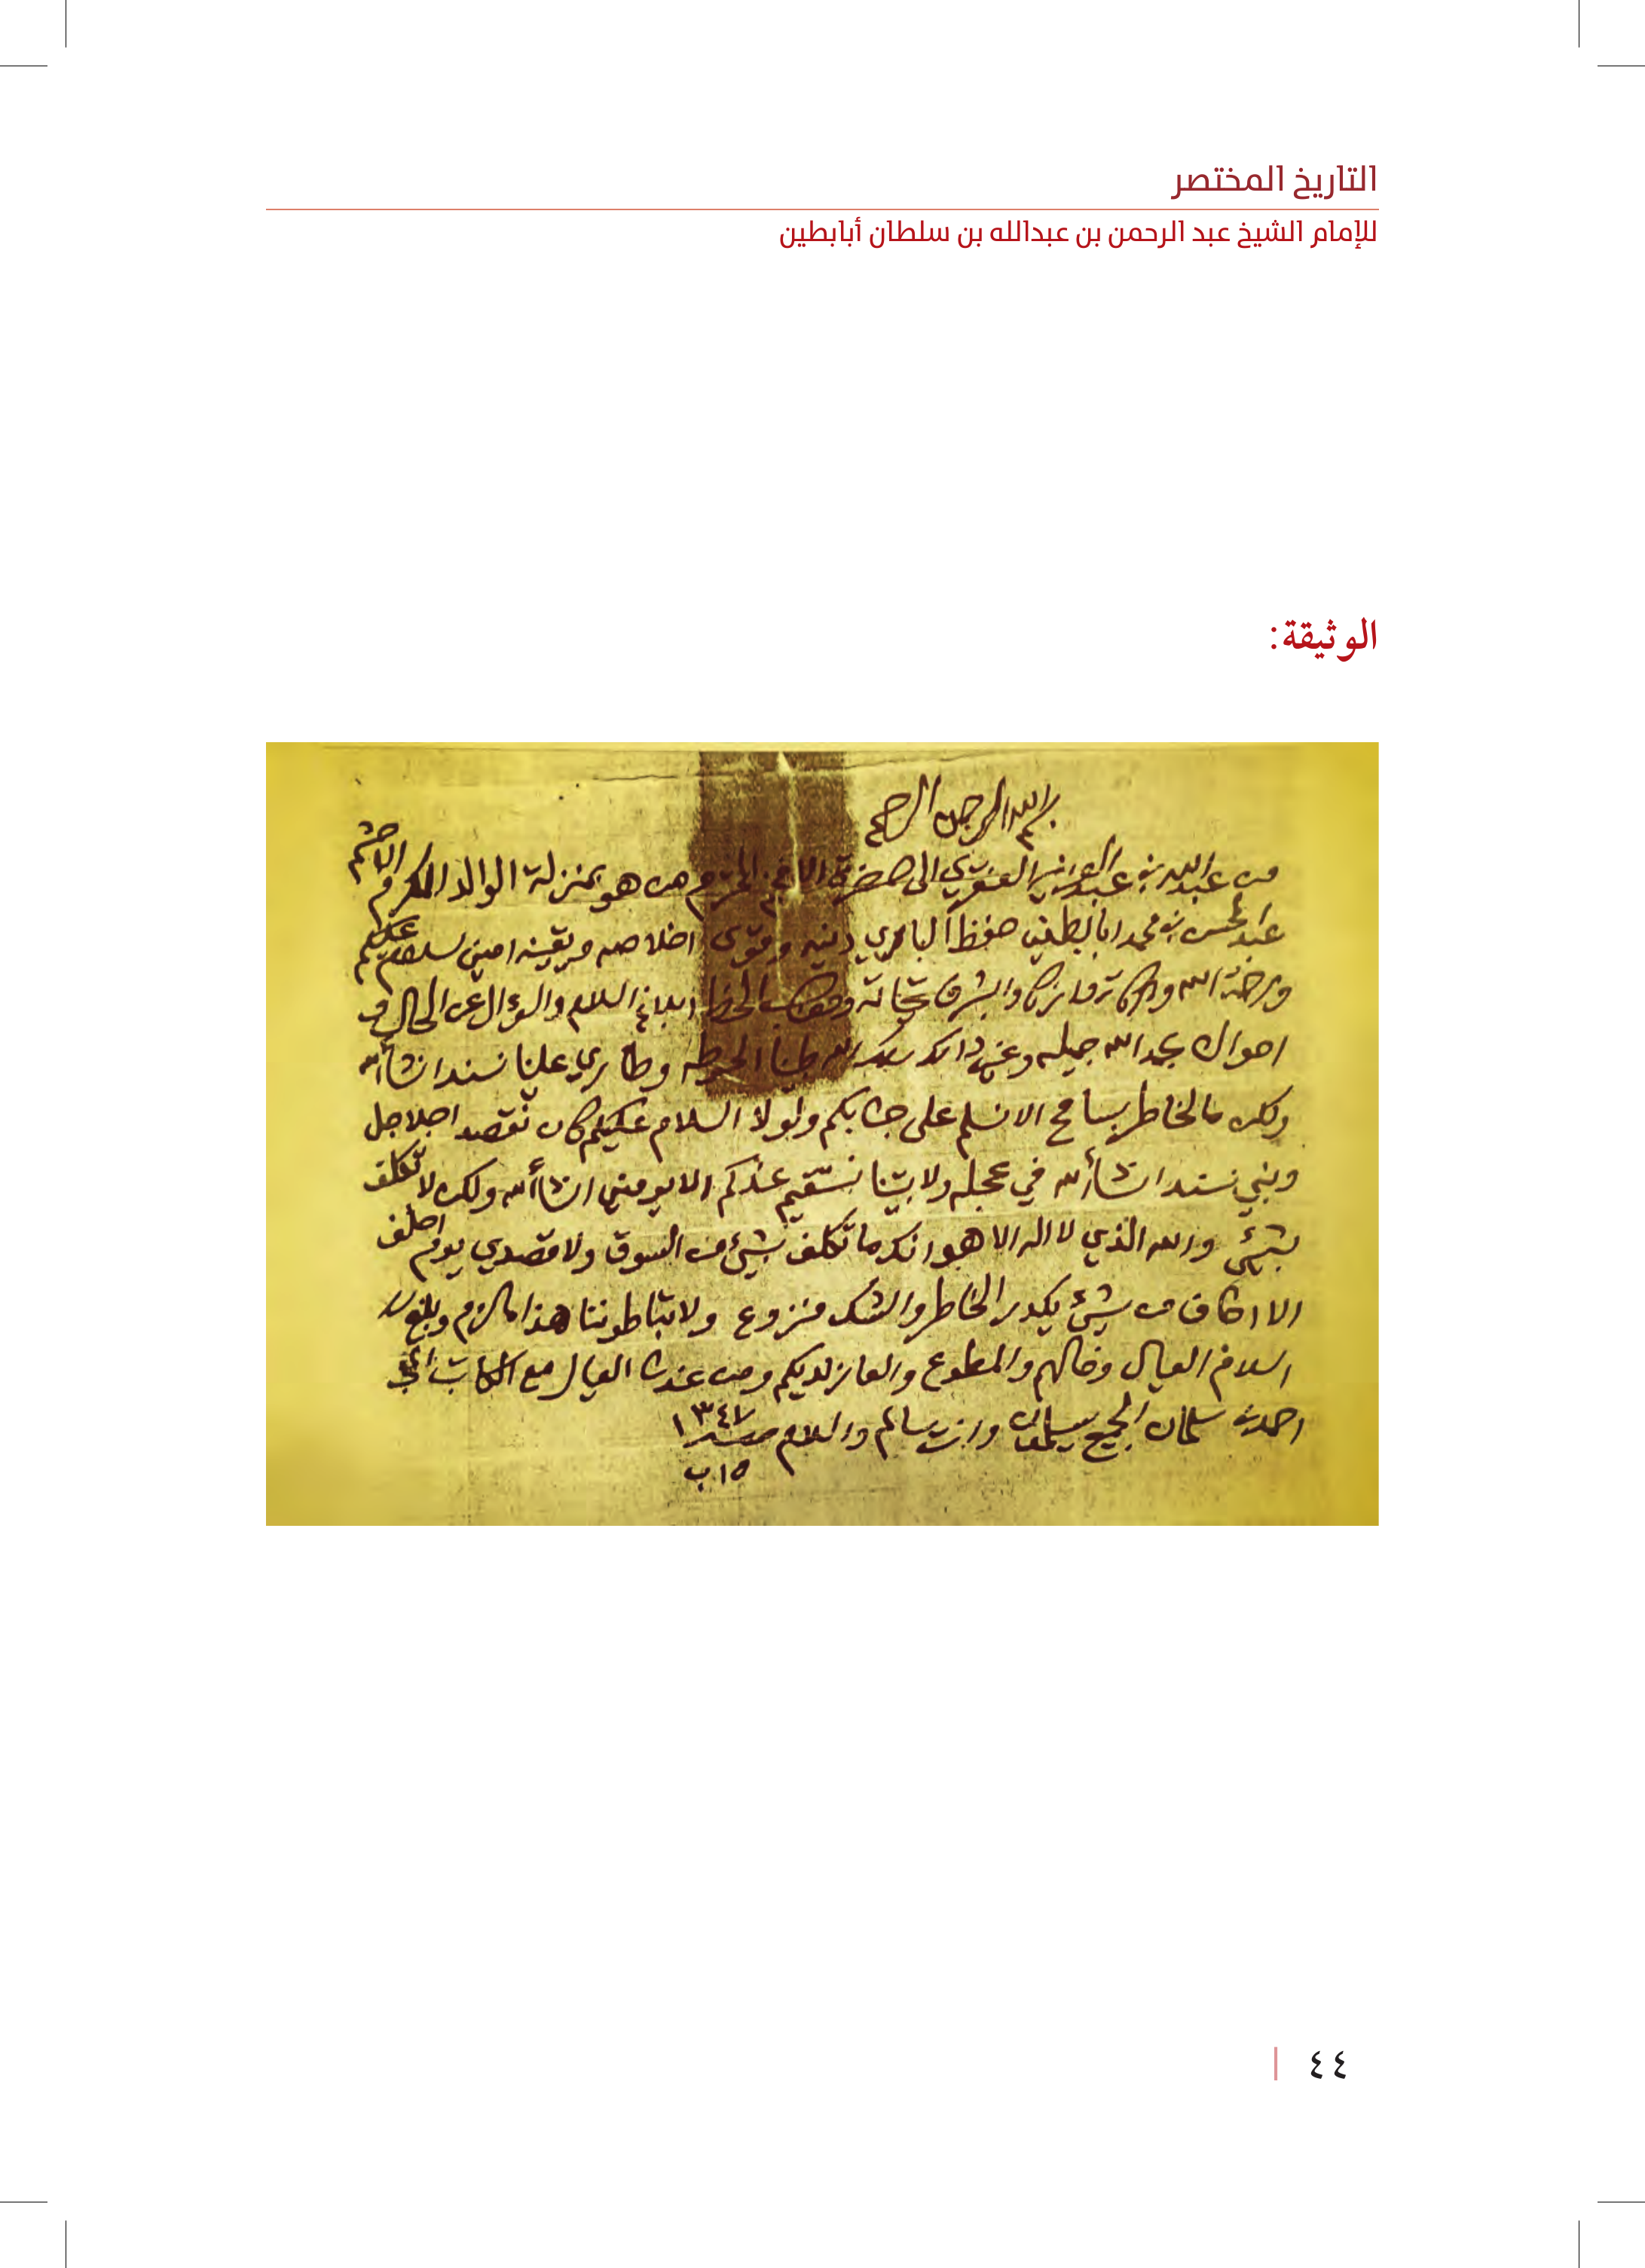 التاريخ المختصر
للإمام الشيخ عبد الرحمن بن عبدالله بن سلطان أبابطين
الوثيقة:
بسم الله الرحمن الرحيم
من عبدالله بن عبدالعزيز العنقري الى حضرة الاخ المكرم من هو بمنزلة الوالد المكرم الاحشم
عبدالمحسن بن محمد ابابطين حفظ الباري دينه وقوى اخلاصه ويقينه امين سلام عليكم
ورحمة الله وبركاته الخط ابلاغ السلام والسؤال عن الحال
احوال بحمد الله جميله وغير ذالك الله طبنا الحوطه وطاري علينا نسند انشاالله
ولكن مالخاطر بسامح الا نسلم على جنابكم ولولا السلام عليكم كان نقصد اجلاجل
ونبي نسند انشاالله في عجله ولا بتنا نستقيم عندكم الا يومين انشاالله ولكن لا تكلف
بشيئ والله الذي لا اله الا هو انك ما تكلف بشيئ من السوق ولا قصدي يوم احلف
الا اخاف من شيئ يكدر الخاطر والشك منزوع ولا تباطوننا هذا مالزم وبلغ لنا
السلام العيال وخالهم والمطوع والعازلديكم ومن عندنا العيال مع الكاتب
احمد سلمان الجميع يسلمون وانت سالم والسلام ١٣٤٧
١٥ ب
٤٤